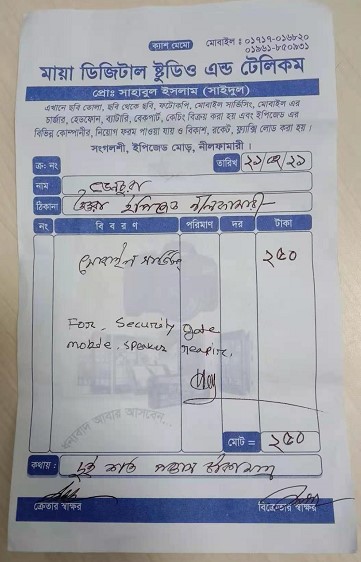 ক্যাশ মেমো মোবাইল : ০১৭১৭-০১৬৮২০
০১৯৬১-৮৫০৯৩১
মায়া ডিজিটাল ষ্টুডিও এন্ড টেলিকম
প্রোঃ সাহাবুল ইসলাম (সাইদুল)
এখানে ছবি তোলা, ছবি থেকে ছবি, ফটোকপি, মোবাইল সার্ভিসিং, মোবাইল এর
চার্জার, হেডফোন, ব্যাটারি, বেকপার্ট, কেচিং বিক্রয় করা হয় এবং ইপিজেড এর
বিভিন্ন কোম্পানীর, নিয়োগ ফরম পাওয়া যায় ও বিকাশ, রকেট, ফ্ল্যাক্সি লোড করা হয়।
সংগলশী, ইপিজেড মোড়, নীলফামারী।
ক্র: নং তারিখ
নাম
ঠিকানা উত্তরা ইপিজেড নীলফামারী
নং বিবরণ পরিমাণ দর টাকা
মোবাইল সার্ভিসিং ২৫০
For. Security gate
mobile. speaker
ধন্যবাদ আবার আসবেন...
মোট = ২৫০
কথায় : দুই শত পঞ্চাশ টাকা মাত্র
ক্রেতার স্বাক্ষর বিক্রেতার স্বাক্ষর